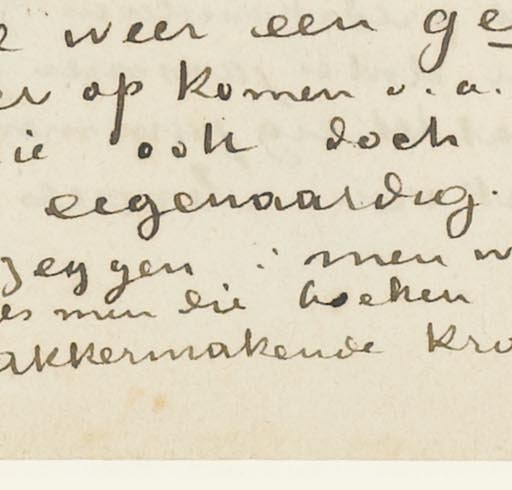 weer een ge
op komen v. a.
ie ook doch
eigenaardig.
zeggen : men w
es men die boeken
akkermakende kra